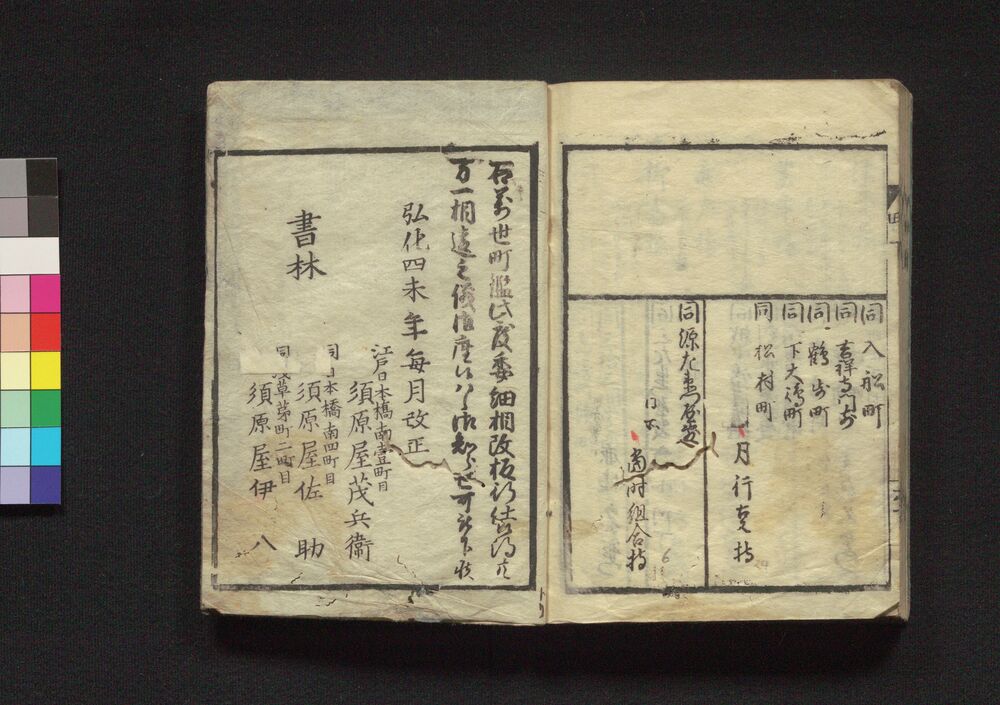 同 入船町
同 吉祥寺門前
同 鶴歩町
同 下大島町
同 松村町
月行支持
同 源左衛屋敷
当時組合持
右万世町鑑此度委細相改板行仕候得共
万一相違之儀御座候ハヽ御知らせ可被下候
弘化四未年毎月改正
書林
江戸日本橋南壹町目
須原屋茂兵衞
同日本橋南四町目
須原屋佐助
同浅草茅町二町目
須原屋伊八